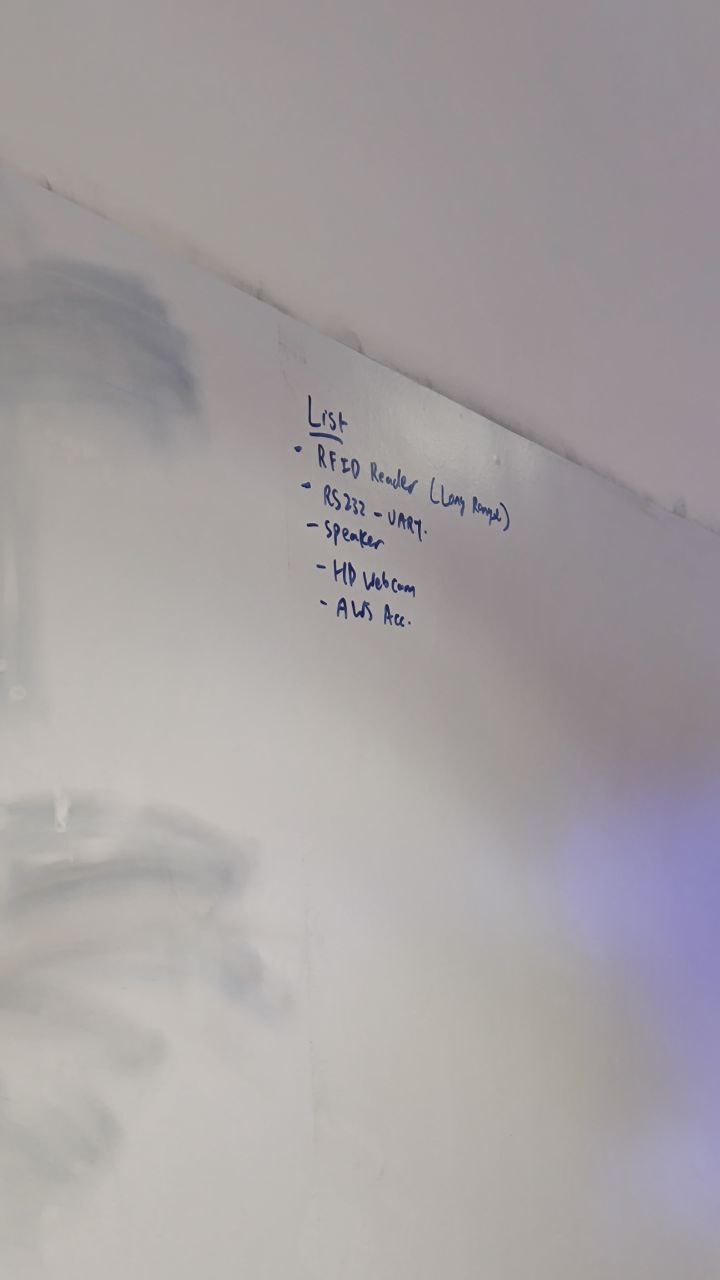 List
• RFID Reader (Long Range)
• RS232 - UART.
- Speaker
- HD Webcam
- AWS Acc.